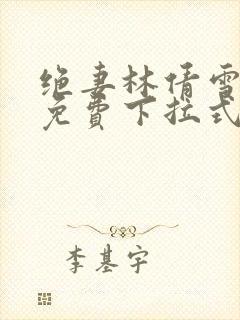 绝妻林倩雪
免費下拉式
李基宇